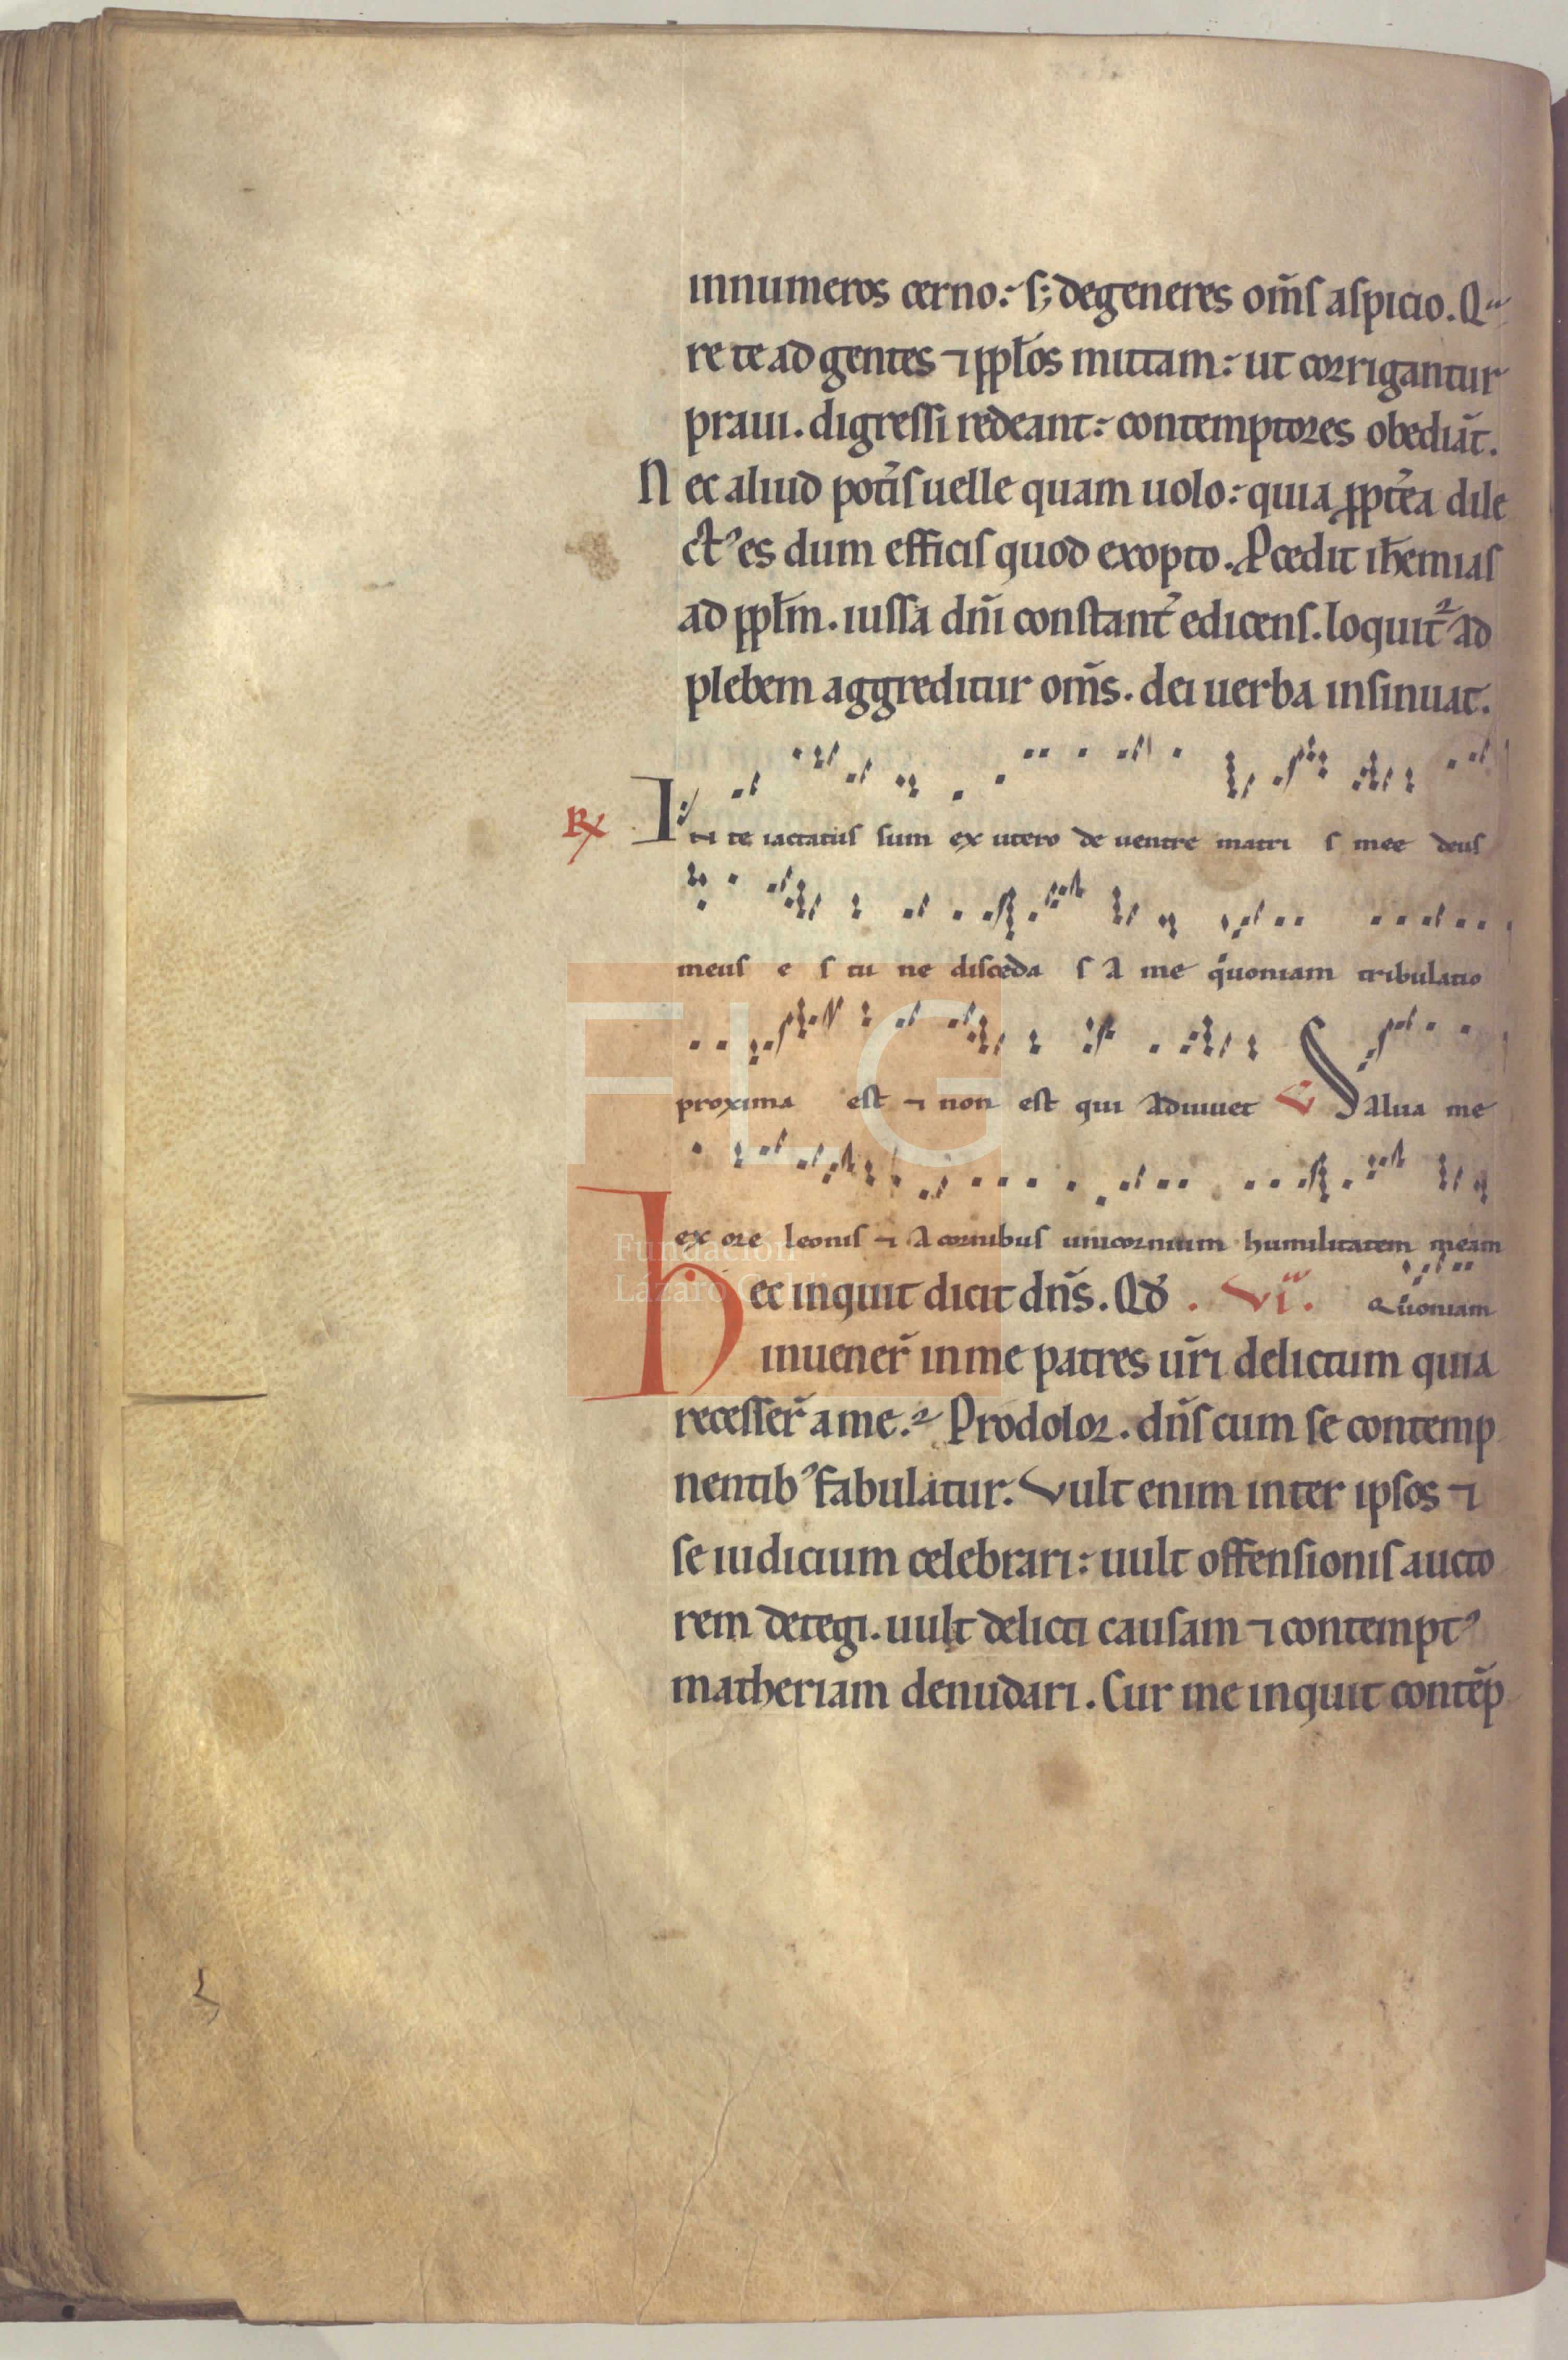 innumeros cerno: s; degeneres om̄s aspicio. Qua
re te ad gentes ⁊ ppl̄os mittam: ut corrigantur
praui. digressi redeant: contemptores obediāt.
Nec aliud potīs uelle quam uolo: quia ꝓpt̄ea dile
ctꝰ es dum efficis quod exopto. Ꝓcedit ih̄emias
ad ppl̄m. iussa dn̄i constant̄ edicens. loquit᷑ ad
plebem aggreditur om̄s. dei uerba insinuat.
R̸ In te iactatus sum ex utero de uentre matri s mee deus
meus e s tu ne disceda s a me quoniam tribulatio
proxima est ⁊ non est qui adiuuet Salua me
ex ore leonis ⁊ a cornibus unicornium humilitatem meam
Hec inquit dicit dn̄s. Qd̄ . VIII. Quoniam
inuener̄ in me patres ur̄i delictum quia
recesser̄ a me. Prodolor. dn̄s cum se contemp
nentibꝰ fabulatur. Vult enim inter ipsos ⁊
se iudicium celebrari: uult offensionis aucto
rem detegi. uult delicti causam ⁊ contemptꝰ
matheriam denudari. Cur me inquit contēp
FLG
Fundación
Lázaro